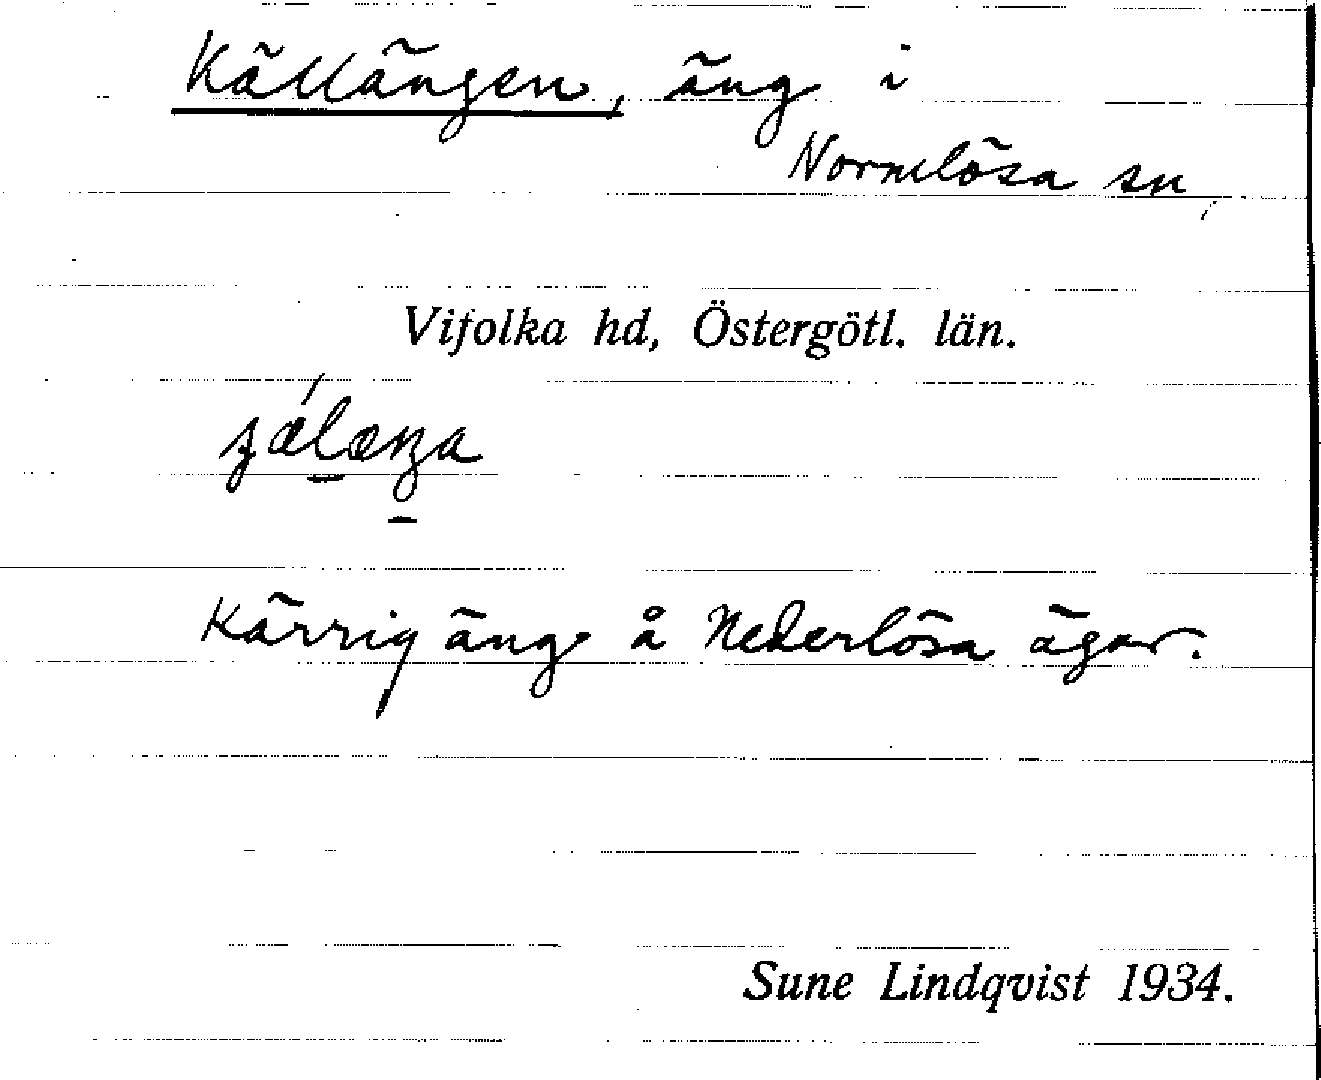 Källängen, äng i
Normlösa sn,
Vifolka hd, Östergötl. län.
Kärrig äng å Nederlösa ägor.
Sune Lindqvist 1934.